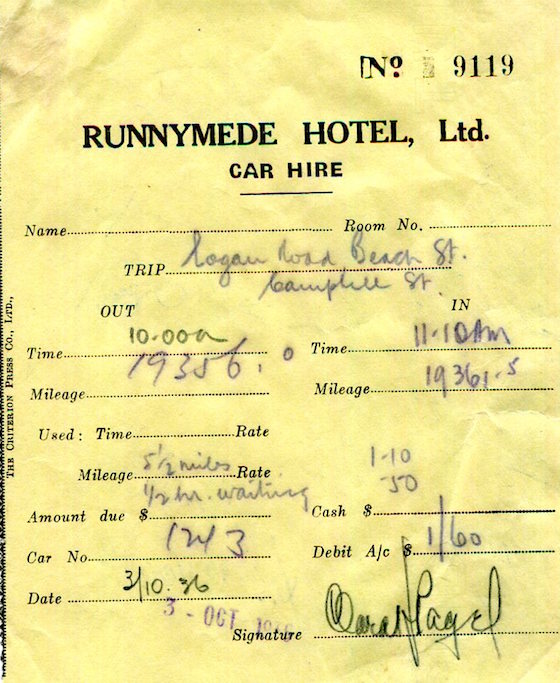 No 9119
RUNNYMEDE HOTEL, Ltd.
CAR HIRE
Name Room No.
TRIP Logan Road Beach St.
Campbell St
OUT IN
10.00a 11.10Am
Time Time
19356.0 19361.5
Mileage Mileage
Used: Time Rate
Mileage 5½ miles Rate 1-10
½ hr. waiting 50
Amount due $ Cash $
Car No. 1243 Debit A/c $ 1/60
Date 3/10.36
3 - OCT
Signature
THE CRITERION PRESS CO., LTD.,